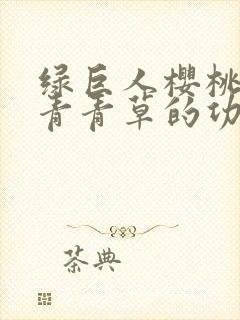 绿巨人樱桃
青青草的功
茶典